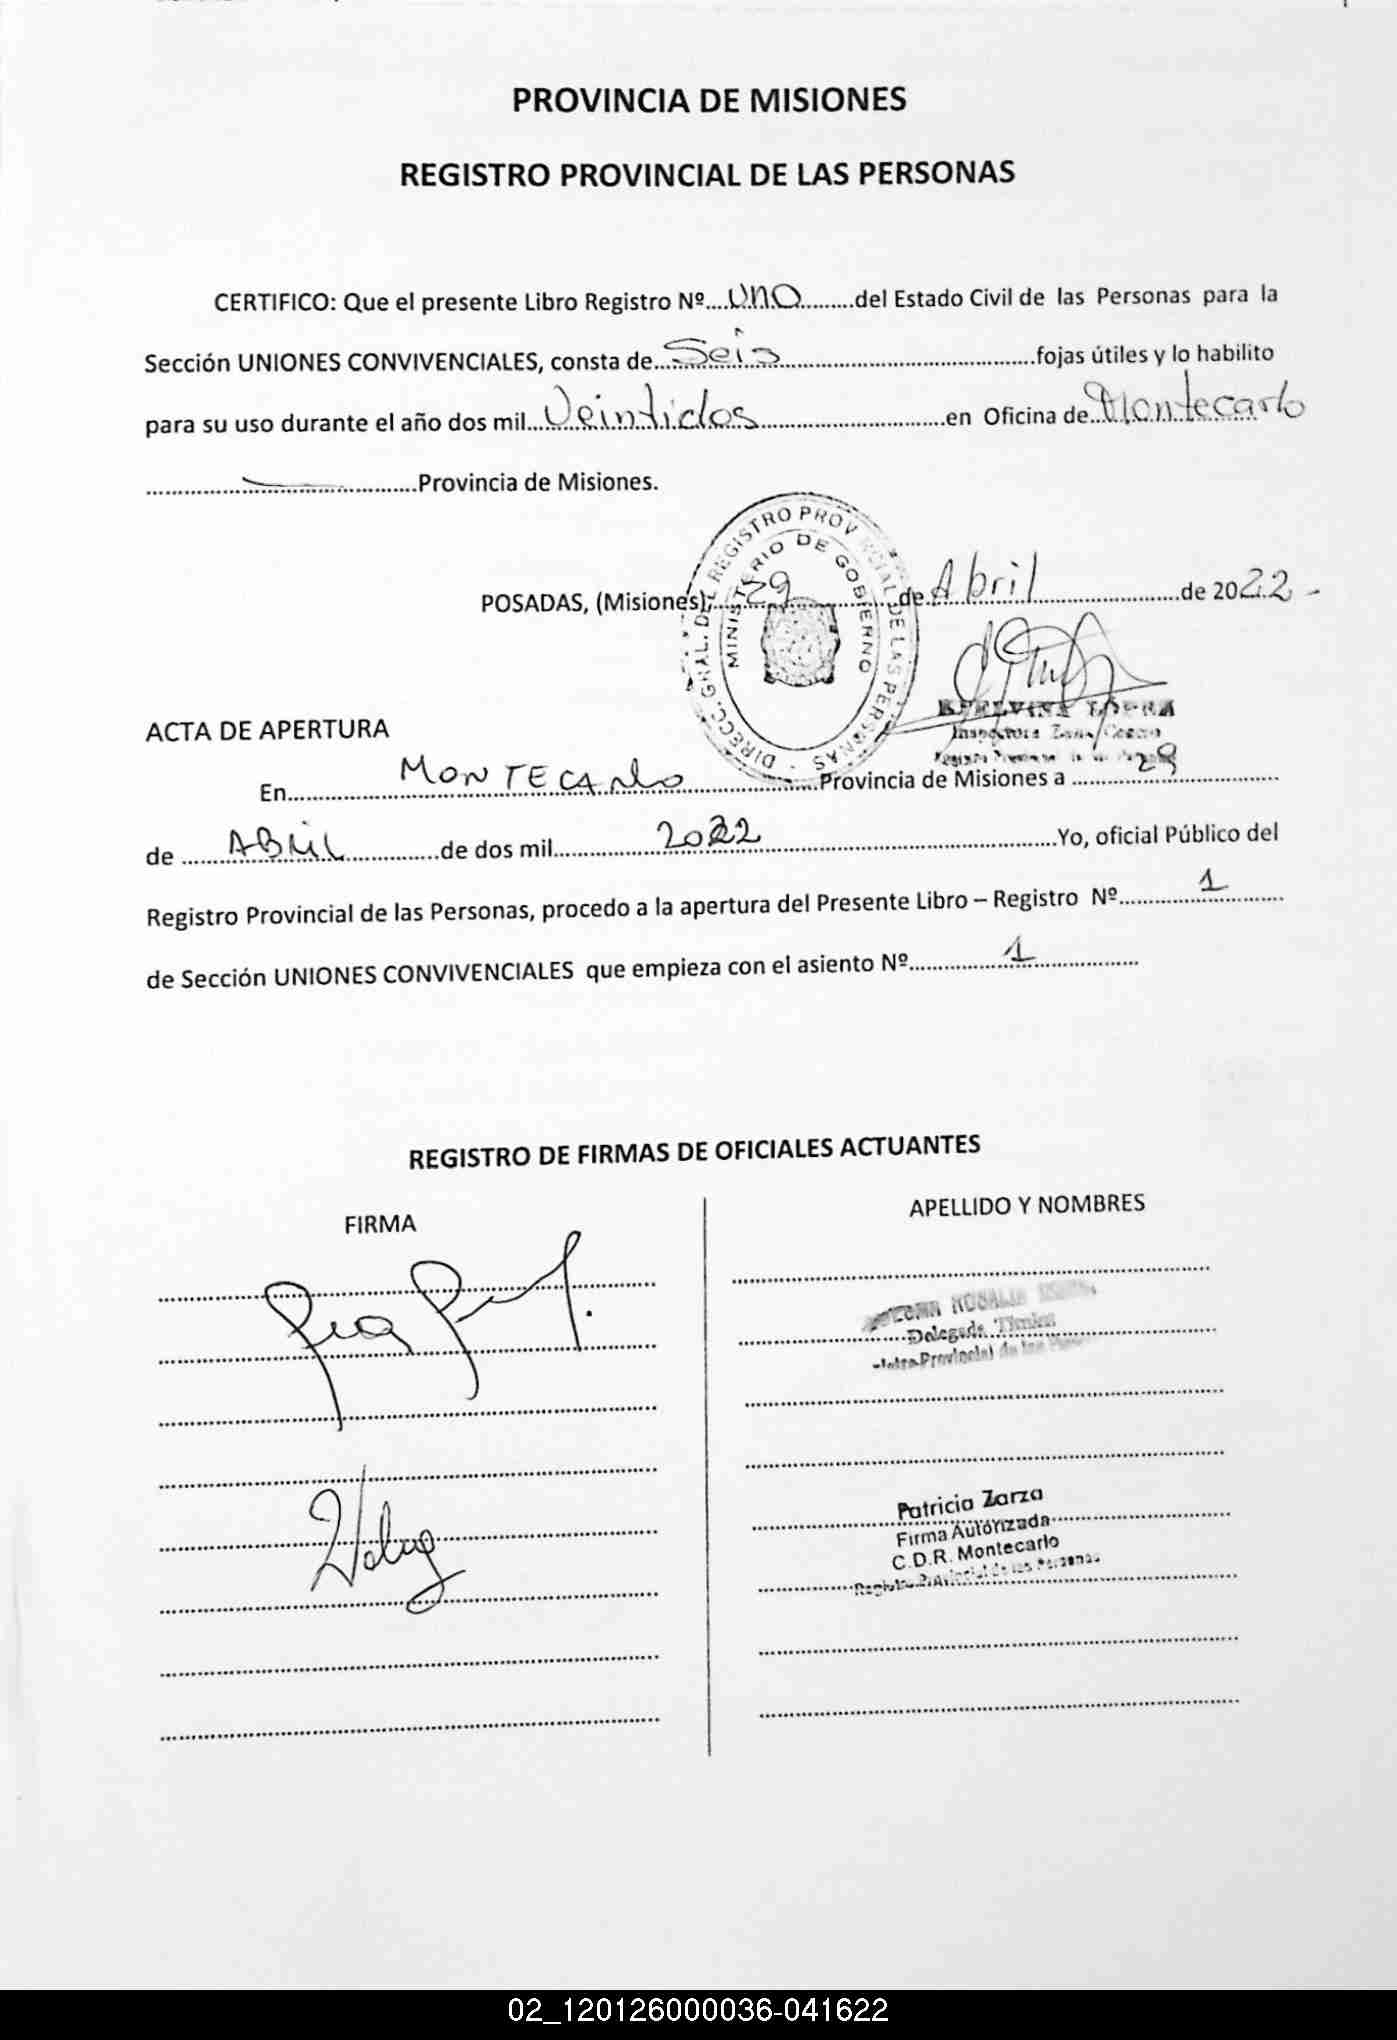 PROVINCIA DE MISIONES
REGISTRO PROVINCIAL DE LAS PERSONAS
CERTIFICO: Que el presente Libro Registro Nº....uno.........del Estado Civil de las Personas para la
Sección UNIONES CONVIVENCIALES, consta de...Seis...fojas útiles y lo habilito
para su uso durante el año dos mil...Veintidos...en Oficina de...Montecarlo
...Provincia de Misiones.
POSADAS, (Misiones),...29...de Abril...de 2022.-
DIRECC. GRAL. DEL REGISTRO PROVINCIAL DE LAS PERSONAS
MINISTERIO DE GOBIERNO
Inspectora Zona Centro
ACTA DE APERTURA
En...MONTECARLO...Provincia de Misiones a ...29...
de ...ABRIL...de dos mil...2022...Yo, oficial Público del
Registro Provincial de las Personas, procedo a la apertura del Presente Libro – Registro Nº...1...
de Sección UNIONES CONVIVENCIALES que empieza con el asiento Nº...1...
REGISTRO DE FIRMAS DE OFICIALES ACTUANTES
FIRMA
APELLIDO Y NOMBRES
ROSALIA
Delegada Técnica
Provincial de las
Patricia Zarza
Firma Autorizada
C.D.R. Montecarlo
Registro Provincial de las Personas
02_120126000036-041622